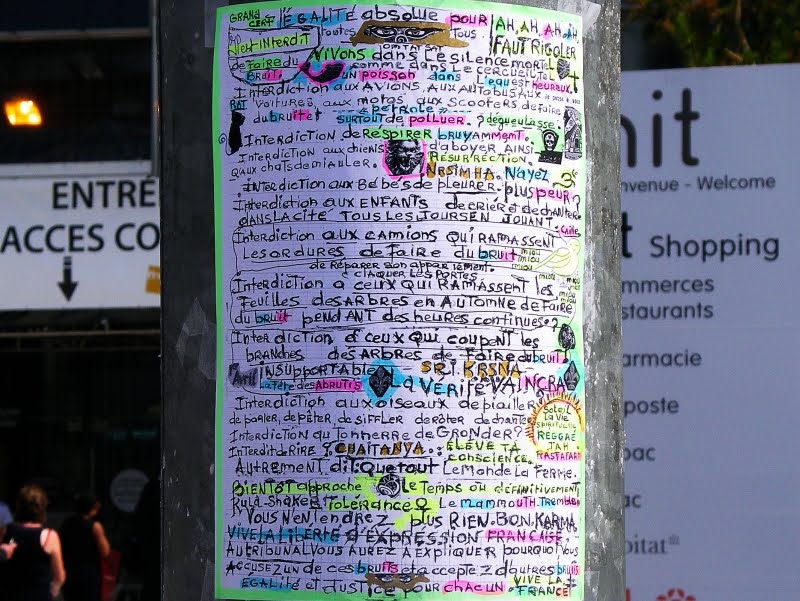 GRAND CERF L'ÉGALITÉ absolue POUR toutes Tous
AH, AH, AH, AH,
FAUT RIGOLER
il est interdit
de FAIRE du BRUIT
Vivons dans le silence mortel
comme dans le cercueil
un poisson dans l'eau est heureux.
Interdiction aux AVIONS, aux AUTOBUS, aux
RAT voitures, aux motos aux scooters de faire
du bruit et "pétrole"
SURTOUT de polluer. ? dégueulasse.
Interdiction de RESPIRER bruyamment.
Interdiction aux chiens d'aboyer, AINSI
Qu'aux chats de miauler. RÉSURRECTION.
NRSIMHA. N'ayez
Interdiction aux Bébés de pleurer. plus peur?
Interdiction aux ENFANTS de crier et de chanter
dans LA CITÉ TOUS LES JOURS EN JOUANT.
Interdiction aux camions QUI RAMASSENT
Les ordures de Faire du bruit
miaou
de Réparer son appartement.
claquer les portes
Interdiction à ceux QUI RAMASSENT les
FEUILLES des ARBRES en AUTOMNE de Faire
du bruit pendant des heures continues?
Interdiction à ceux qui coupent les
branches des ARBRES de Faire du bruit
INSUPPORTABLE SRI KRSNA
Avril La Fête des ABRUTIS La VÉRITÉ VAINCRA
Interdiction aux oiseaux de piailler
de parler, de péter, de siffler de roter de chanter
Interdiction au Tonnerre de GRONDER?
Soleil
La Vie
spirituelle
REGGAE
JAH
RASTAFARI
Interdit de RIRE? CHAITANYA.. ÉLÈVE TA
CONSCIENCE.
Autrement dit: Que tout Le Monde La Ferme.
BIENTÔT approche Le Temps où définitivement
Tolérance Le mammouth
Vous n'entendrez plus RIEN. BON KARMA
VIVE LA LIBERTÉ d'EXPRESSION FRANÇAISE.
AU TRIBUNAL VOUS AUREZ À EXPLIQUER POURQUOI Vous
ACCUSEZ UN de ces bruits et acceptez d'autres bruits
EGALITÉ et JUSTICE pour chacun VIVE LA FRANCE!
ENTRÉ
ACCES CO
nit
nvenue - Welcome
t Shopping
mmerces
staurants
armacie
poste
bac
ac
pitat